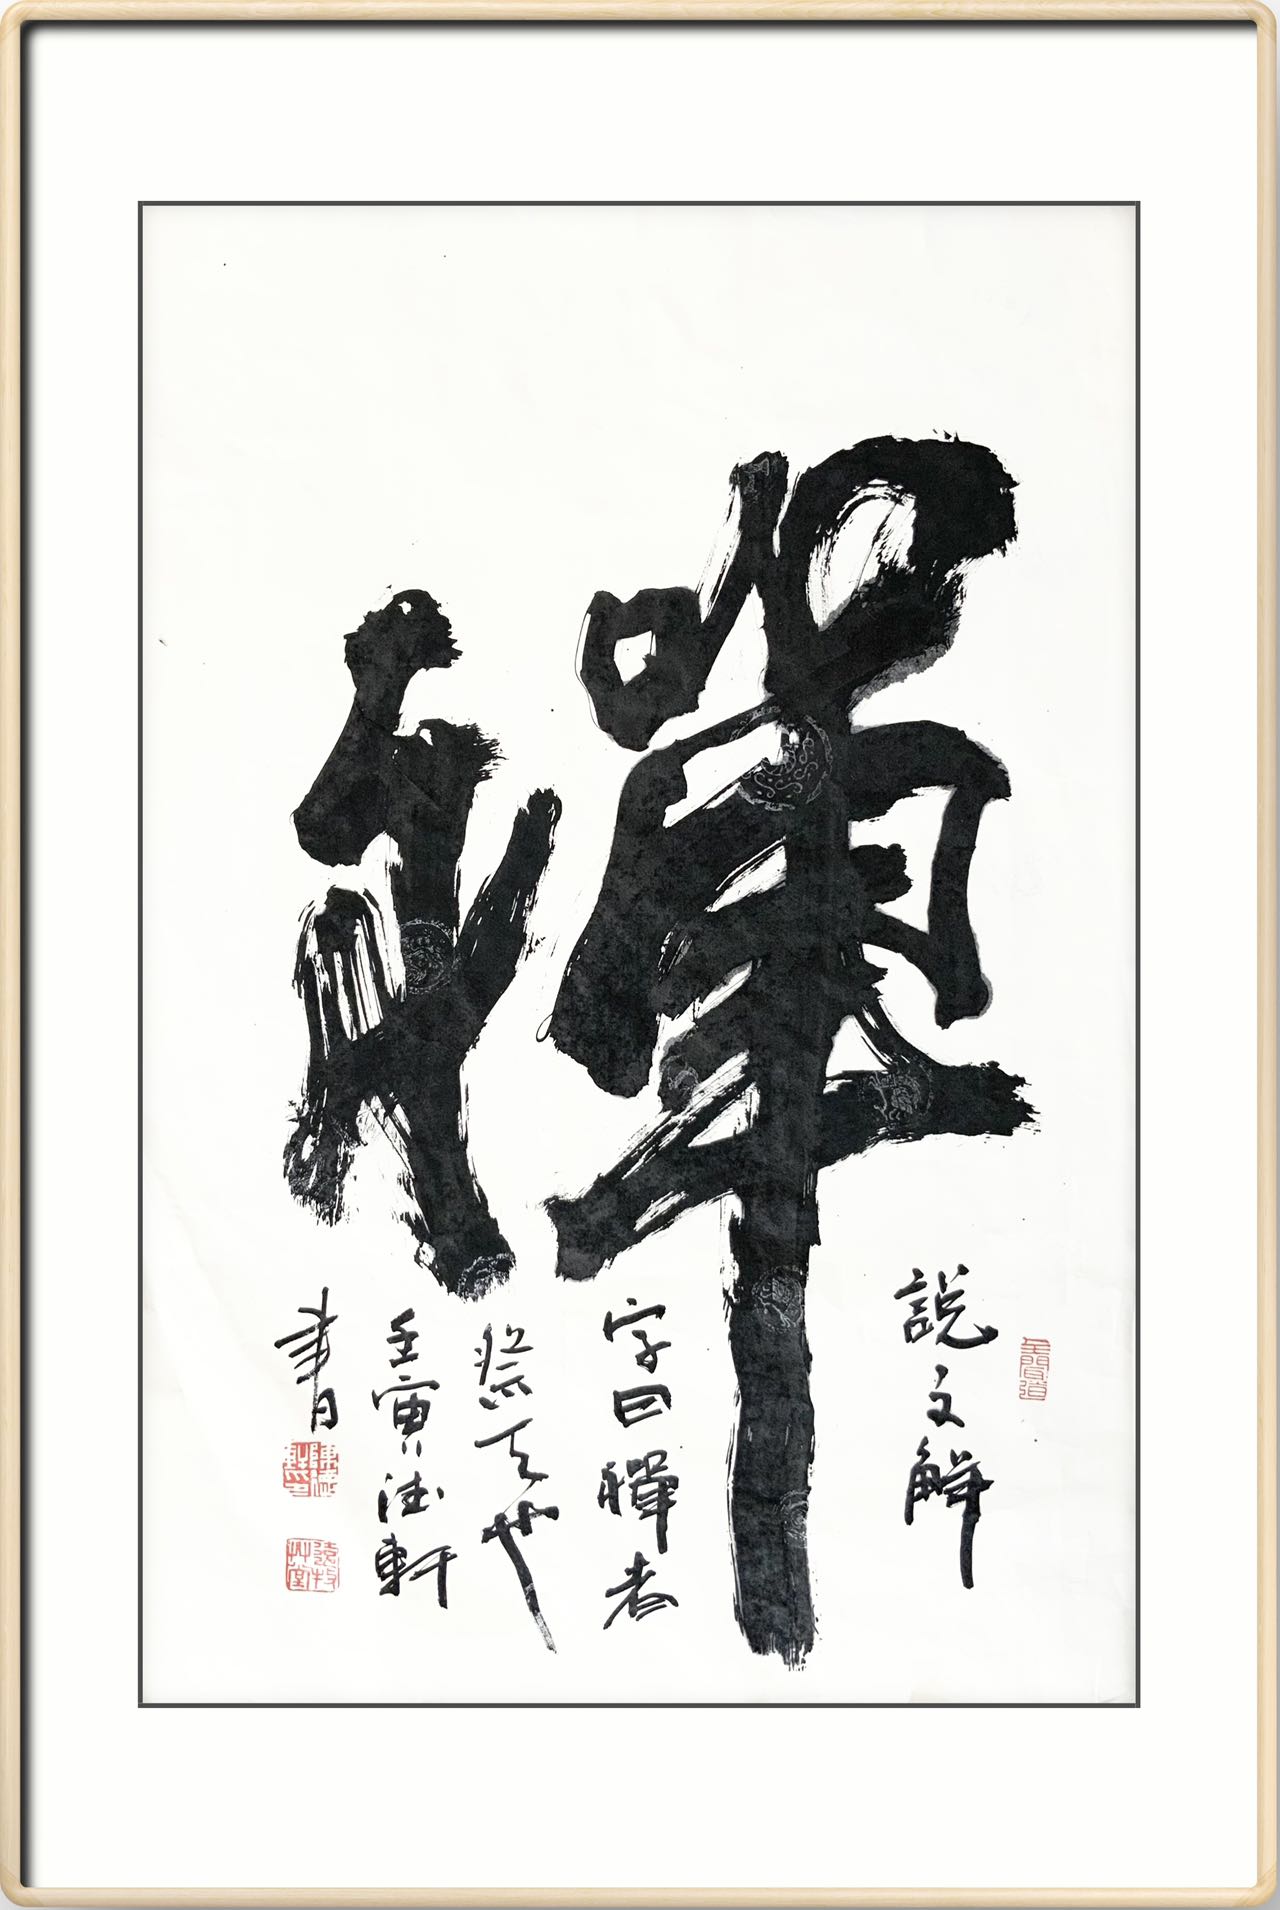 禪
說文解
字曰禪者
祭天也
壬寅德軒
書